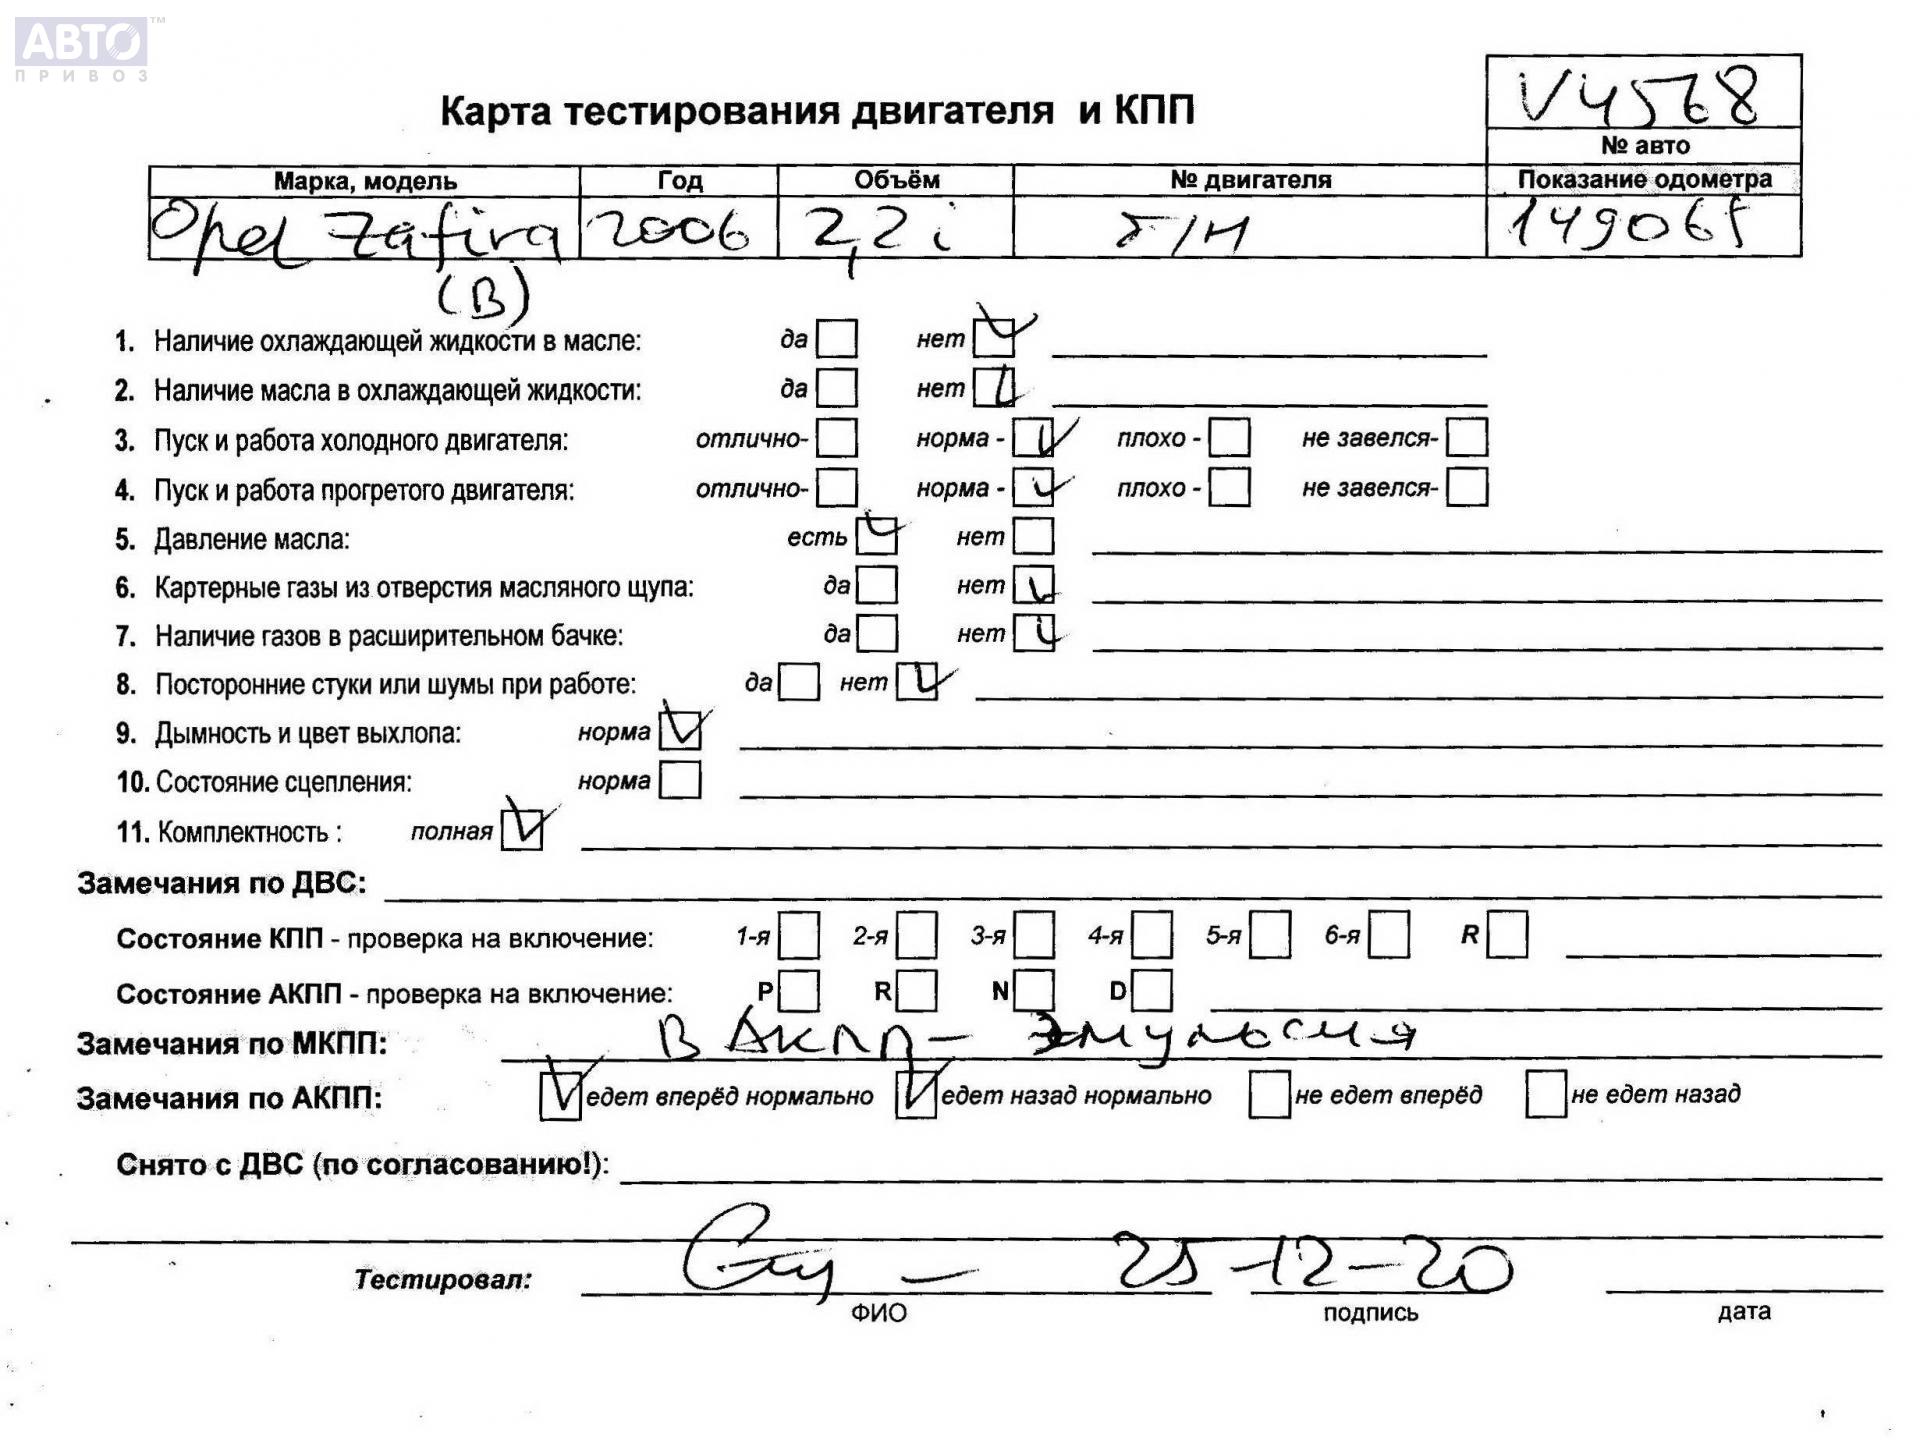 АВТО™
ПРИВОЗ
V4568
Карта тестирования двигателя и КПП
№ авто
Марка, модель Год Объём № двигателя Показание одометра
Opel Zafira 2006 2,2i Б/Н
(B)
1. Наличие охлаждающей жидкости в масле: да нет
2. Наличие масла в охлаждающей жидкости: да нет
3. Пуск и работа холодного двигателя: отлично- норма - плохо - не завелся-
4. Пуск и работа прогретого двигателя: отлично- норма - плохо - не завелся-
5. Давление масла: есть нет
6. Картерные газы из отверстия масляного щупа: да нет
7. Наличие газов в расширительном бачке: да нет
8. Посторонние стуки или шумы при работе: да нет
9. Дымность и цвет выхлопа: норма
10. Состояние сцепления: норма
11. Комплектность : полная
Замечания по ДВС:
Состояние КПП - проверка на включение: 1-я 2-я 3-я 4-я 5-я 6-я R
Состояние АКПП - проверка на включение: P R N D
Замечания по МКПП: В АКПП - Эмульсия
Замечания по АКПП: едет вперёд нормально едет назад нормально не едет вперёд не едет назад
Снято с ДВС (по согласованию!):
Тестировал: 25-12-20
ФИО подпись дата